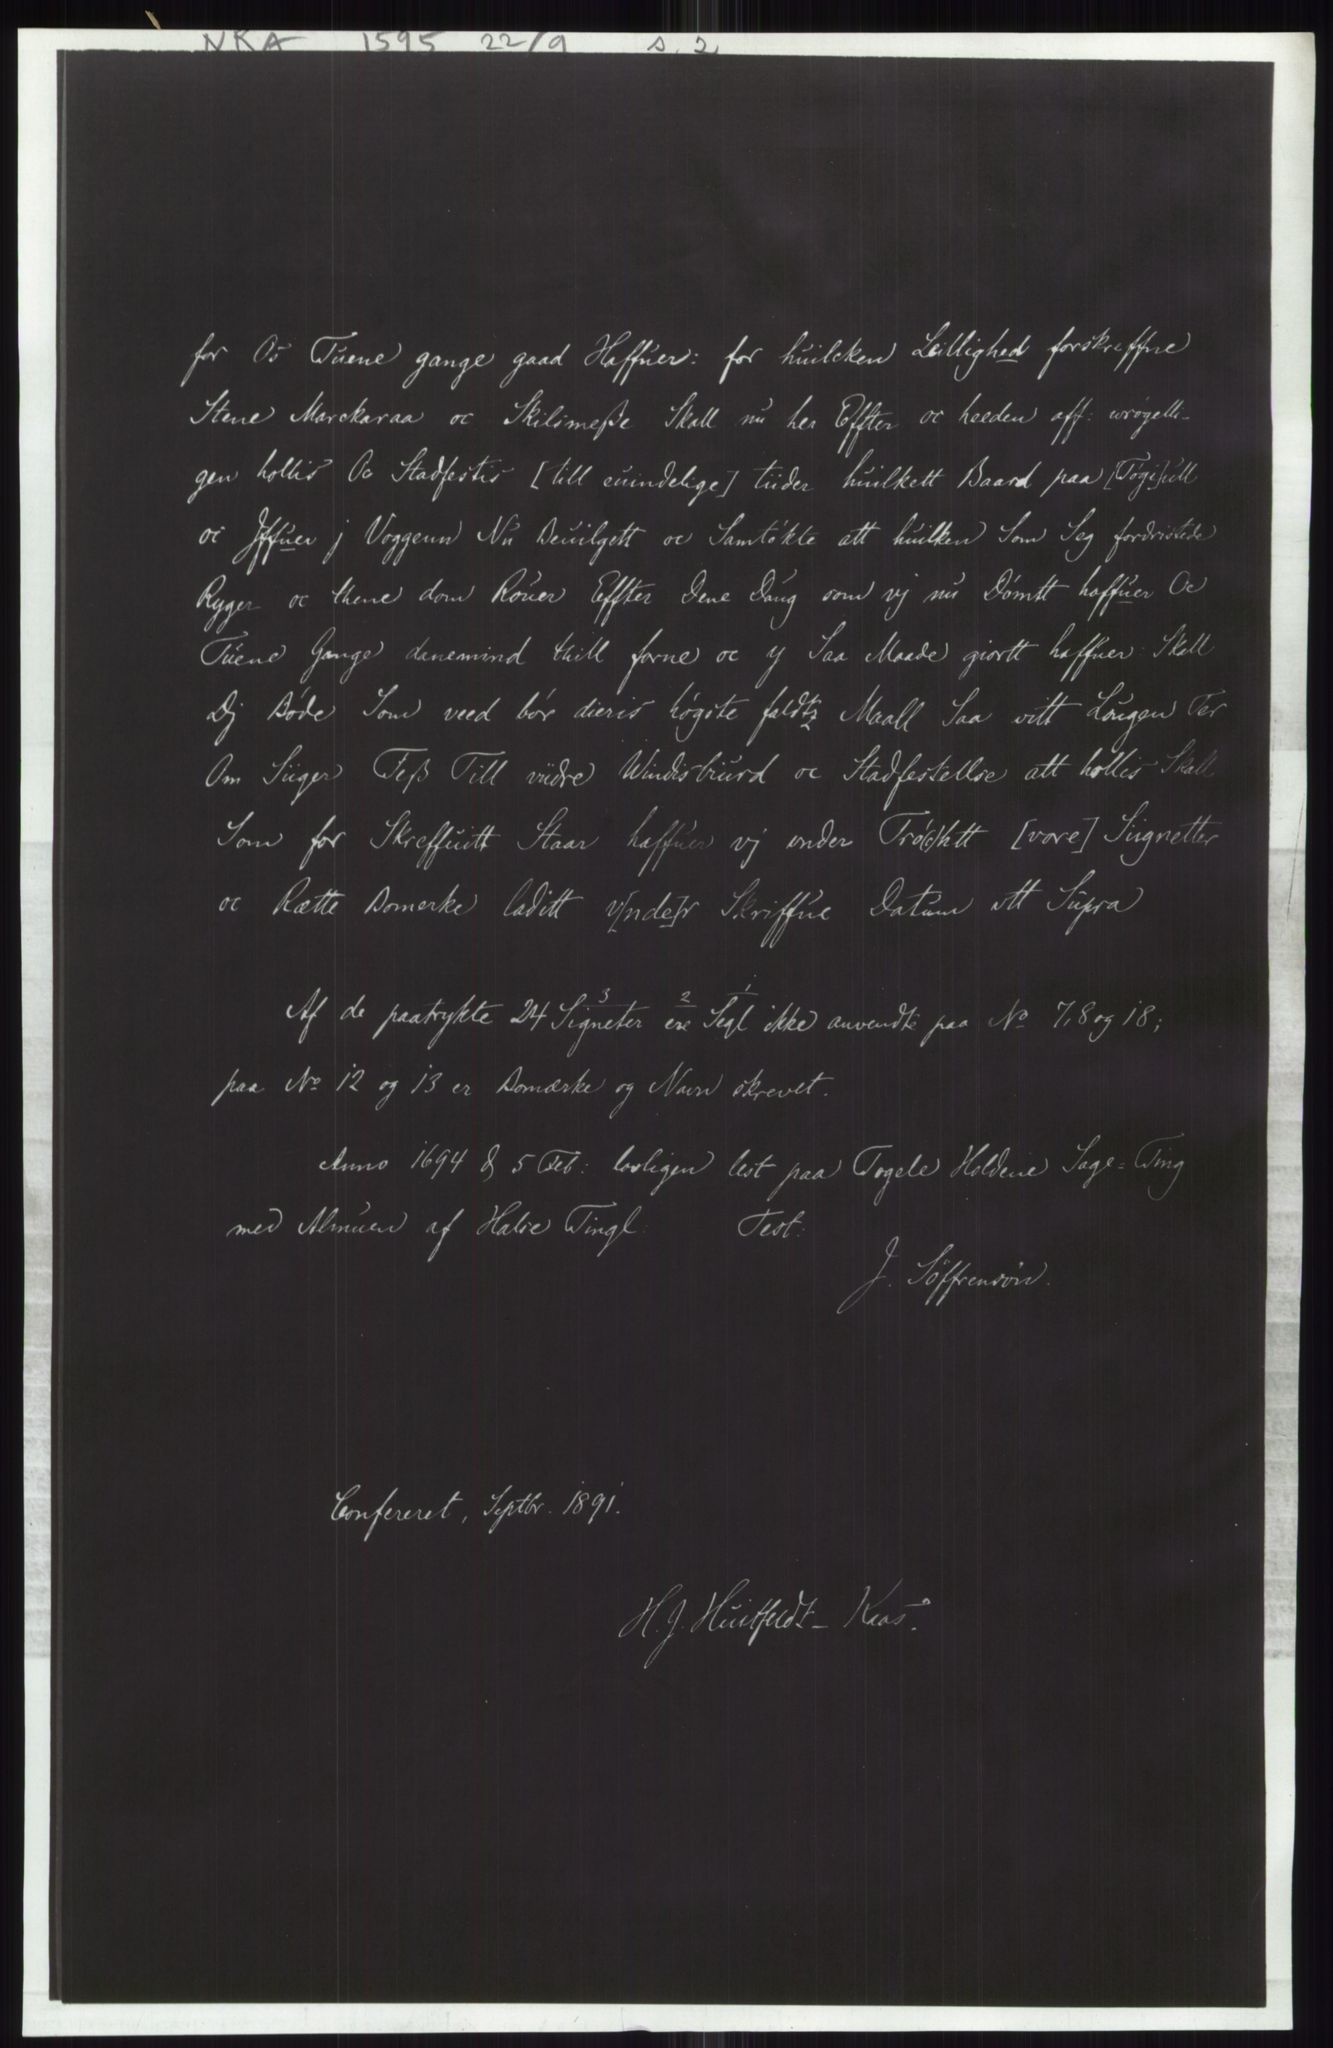 NRA 1595 22/9 s. 2
for Os Tuene gange gaad Haffuer: for huilcken Leillighed forskreffne
Stene Marckaraa oc Skilsmeße Skall nu her Effter oc heeden aff: urøgelli-
gen hollis Oc Stadfestis [till euindelige] tiider huilkett Baard paa [Togi]ull
oc Jffuer j Voggenn Nu Beuilgett oc Samtøkte att huilken Som Seg fordristede
Ryger oc thene dom Rouer Effter Dene Daug som vj nu Dømtt haffuer Oc
Tuene Gange danemind thill forne oc y Saa Maade giortt haffuer: Skall
Dj Bøde Som veed bør dieris høgste faldtz Maall Saa vitt Lougen Ter
Om Siiger Teß Till viidre Windisbiurd oc Stadfestellse att hollis Skall
Som for Skreffuitt Staar haffuer vj under Trø(c)htt [vore] Siignetter
oc Rætte Bomerke laditt v[nde]r Skriffue Datum utt Supra
Af de paatrykte 24 Signeter 3 ere 2 Segl 1 ikke anvendte paa No 7, 8 og 18;
paa No 12 og 13 er Bomærke og Navn skrevet.
Anno 1694 d 5 Feb: lovligen lest paa Togele Holdene Sage-Ting
med Almuen af Halse Tingl: Test:
J. Søffrensøn.
Confereret, Septbr. 1891.
H. J. Huitfeldt-Kaas.